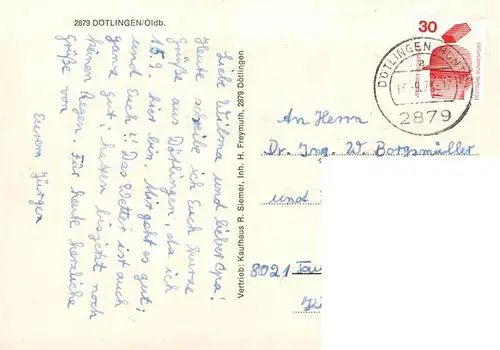 2879 DÖTLINGEN/Oldb.
Liebe Wilma und lieber Opa!
Heute schreibe ich Euch kurze
Grüße aus Dötlingen, da ich
15.9. hier bin. Mir geht es gut;
und Euch?! Das Wetter ist auch
ganz gut; hatten bisjetzt noch
keinen Regen. Für heute herzliche
Grüße von
Eurem Jürgen
Vertrieb: Kaufhaus R. Siemer, Inh. H. Freymuth, 2879 Dötlingen
30
DEUTSCHE BUNDESPOST
DÖTLINGEN
a
2879
An Herrn
Dr. Ing. W. Borgsmüller
und
8021